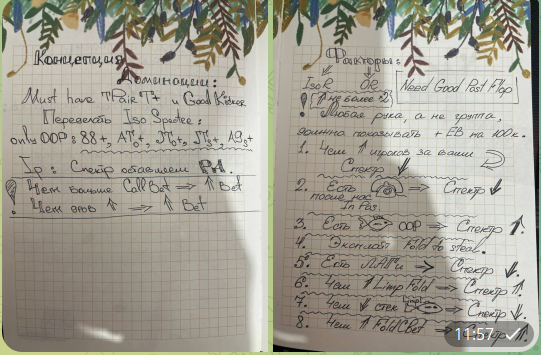 Концепция
Доминации:
Must have TPair T+ и Good Kicker
Переделать Iso Spectre:
only OOP: 88+, ATo+, JTs+, A9s+
Ip: Спектр оставляем
Чем больше Call Bet => ↑ Bet
Чем ↑ => ↑ Bet
Факторы:
IsoR OR Need Good Post Flop
↑ не более 2
! Любая рука, а не группа,
должна показывать + EB на 100к.
1. Чем ↑ игроков за вами
Спектр ↓
2. Есть => Спектр ↓
после нас
In Pos.
3. Есть OOP => Спектр ↑.
4. Эксплойт Fold to steal.
5. Есть ЛАГи -> Спектр ↓.
6. Чем ↑ Limp Fold -> Спектр ↑.
7. Чем ↓ стек Limp => Спектр ↓.
8. Чем ↑ Fold CBet => Спектр ↑.
11:57